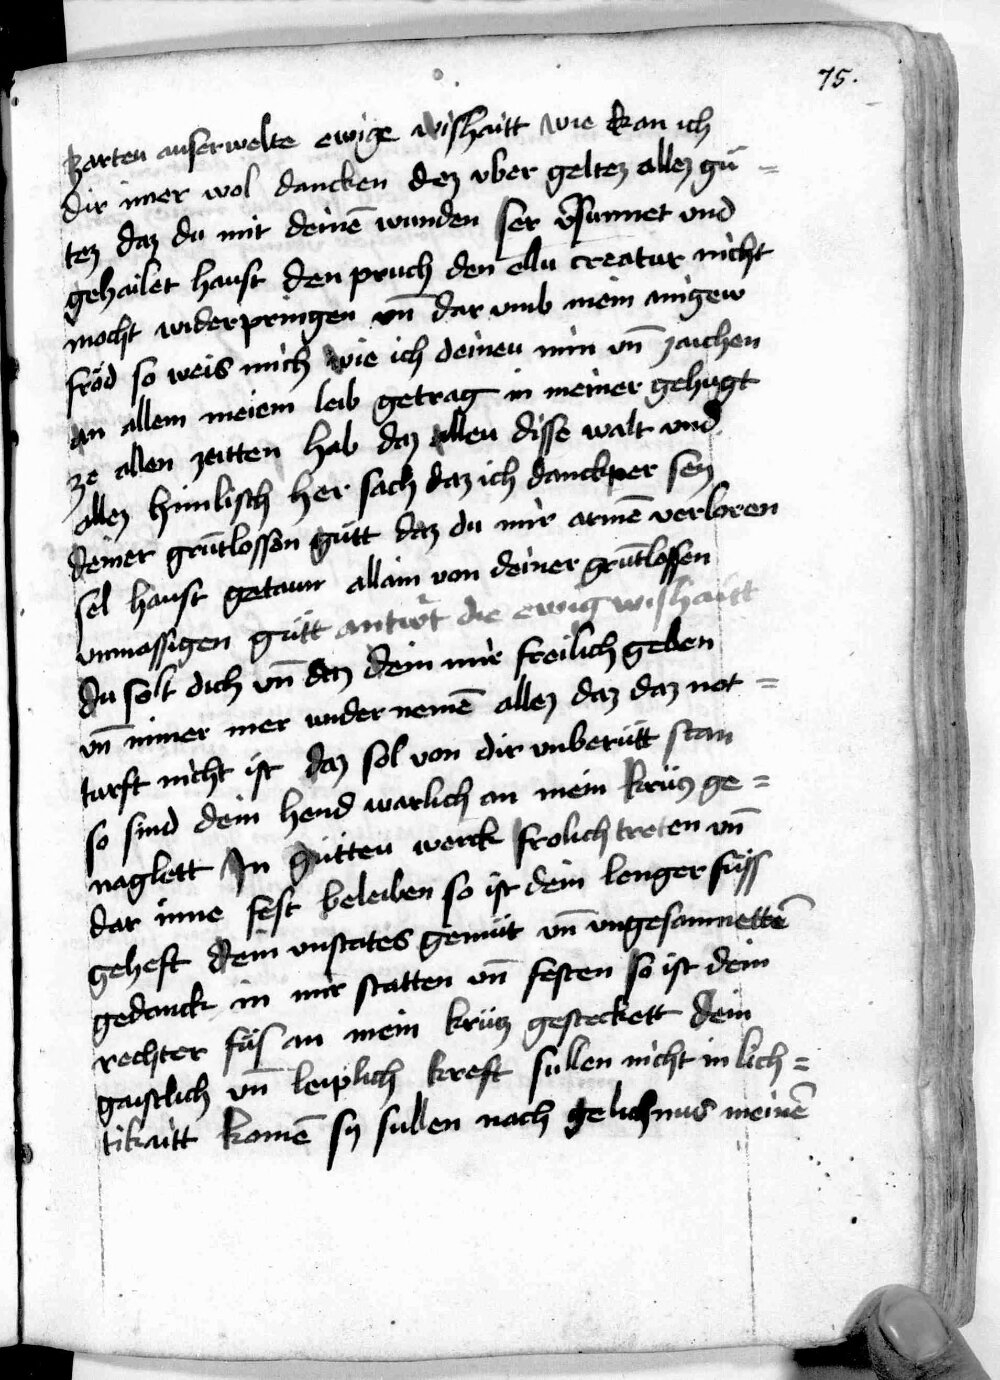 75.
zarten auserwelte ewige wishaitt wie kan ich
dir imer wol dancken dez vber geltez allez gü =
tez daz du mit deinē wunden ser v̄sunnet vnd
gehailet haust den pruch den ellu creatur nicht
mocht widerpringen vn̄ dar vmb mein ainigew
fröd so weis mich wie ich deineu min vn̄ zaichen
an allem meiem leib getrag in meiner gehugt
ze allen zeitten hab daz alleu disse walt vnd
allez himlisch her sach daz ich danckper sey
deiner grūtlossen gütt daz du mir armē verloren
sel haust getaun allain von deiner grūtlossen
vnmassigen gütt antwr̄t die ewig wishaitt
du solt dich vn̄ daz dein mir freilich geben
vn̄ nimer mer wider nemē allez daz daz not =
turft nicht ist daz sol von dir vnberütt stan
so sind dein hend warlich an mein krütz ge =
naglett In gütten werck frolich treten vn̄
dar inne fest beleiben so ist dein lenger füss
geheft dein vnstates gemüt vn̄ vngesamnettē
gedanck in mir statten vn̄ festen so ist dein
rechter füs an mein krütz gesteckett dein
gaistlich vn̄ leiplich kreft sullen nicht in lich =
tikaitt komē sy sullen nach gelichnus meinē